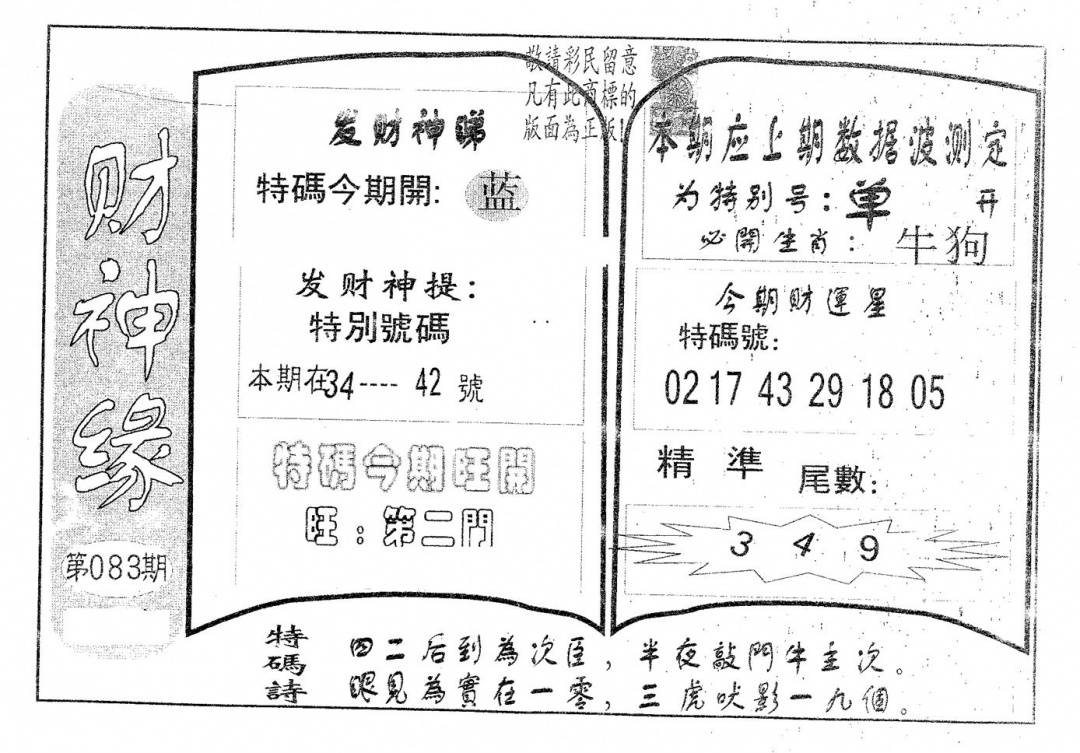 财神缘
第083期
敬請彩民留意
凡有此商標的
版面為正版!
发财神睇
特碼今期開: 蓝
发财神提:
特別號碼
本期在34---- 42 號
特碼今期旺開
旺:第二門
本期应上期数据波测定
为特别号:单 开
必開生肖: 牛狗
今期財運星
特碼號:
02 17 43 29 18 05
精準 尾數:
3 4 9
特碼詩
四二后到為次臣,半夜敲門牛主次。
眼見為實在一零,三虎吠影一九個。